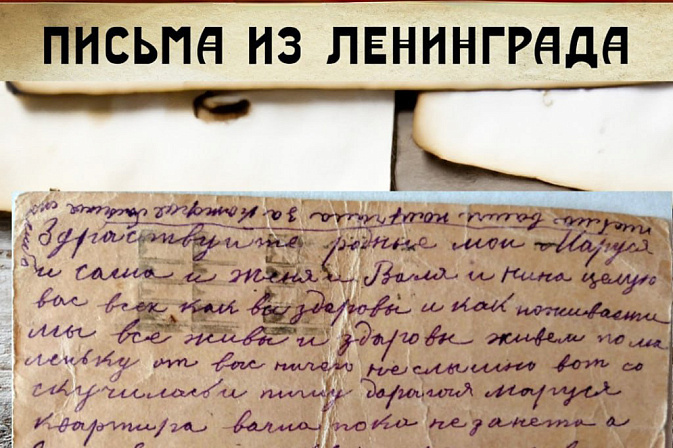 ПИСЬМА ИЗ ЛЕНИНГРАДА
Здраствуите родные мои Маруся
и саша и женя и Валя и нина целую
вас всех как вы здоровы и как поживаети
мы все живы и здоровы живем пома
леньку от вас ничего не слышино вот со
скучилась и пишу дарагая маруся
квартира ваша пока не занета а